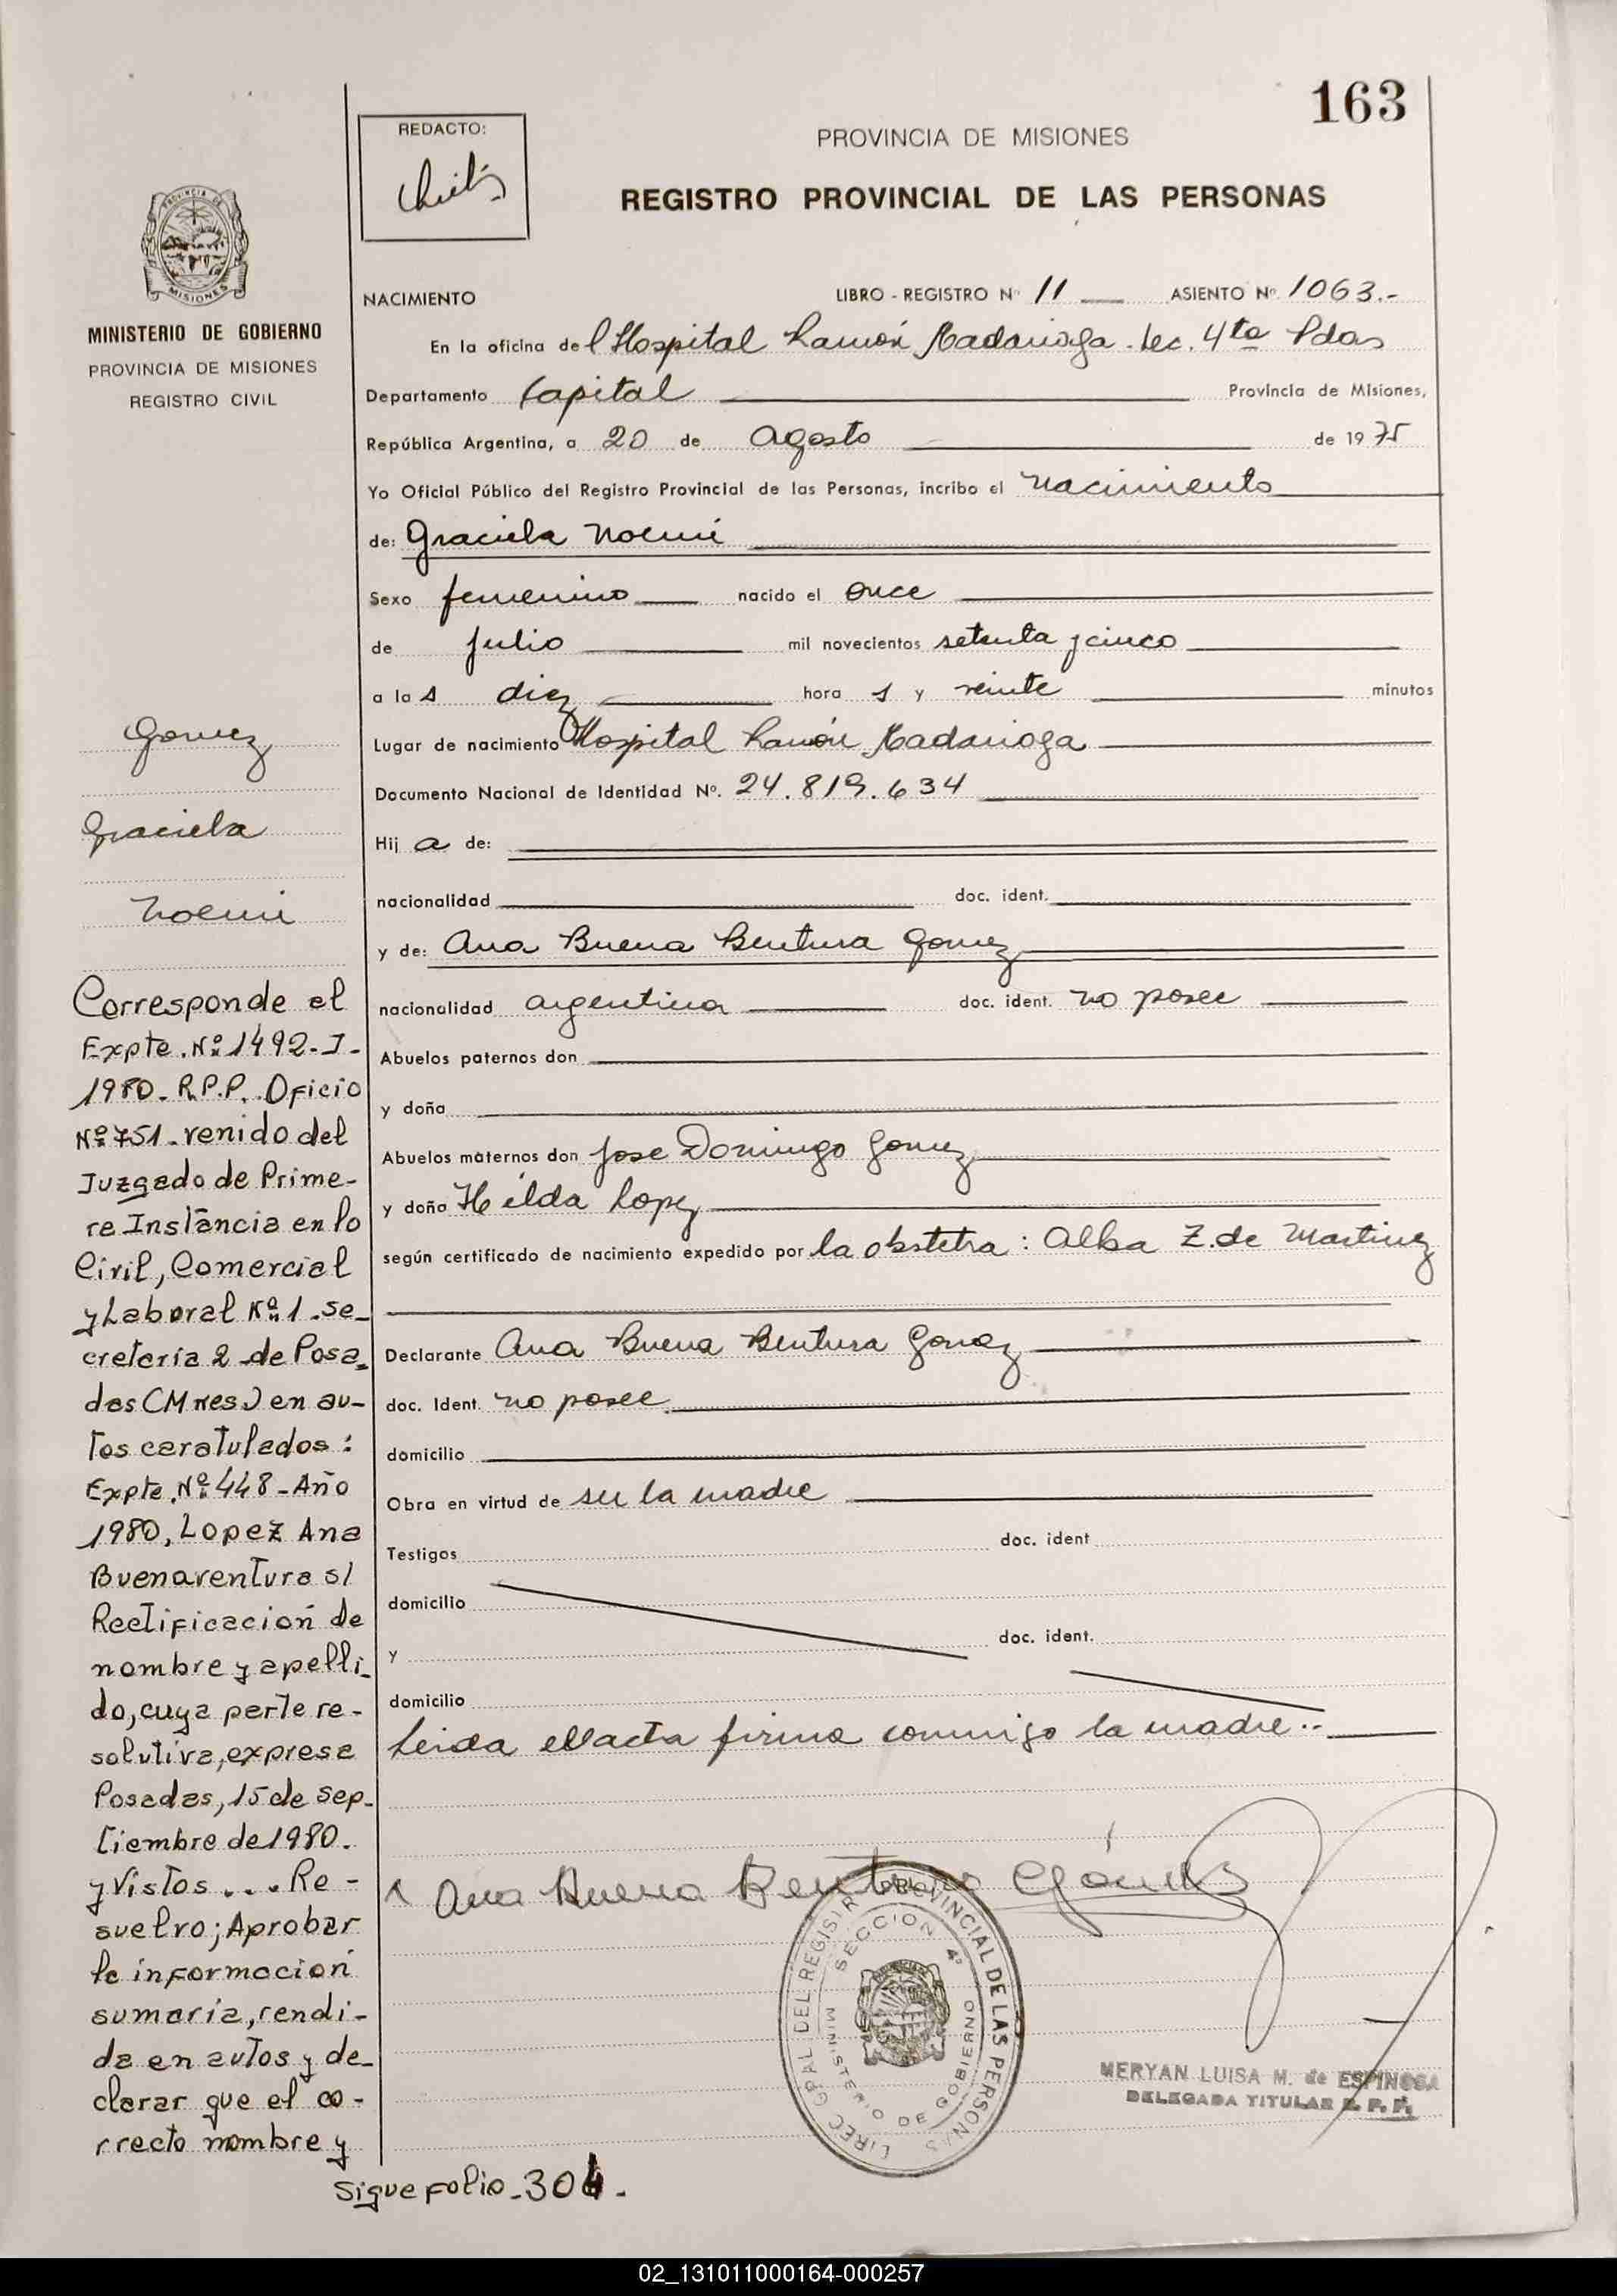 163
REDACTO:
PROVINCIA DE MISIONES
REGISTRO PROVINCIAL DE LAS PERSONAS
MISIONES
MINISTERIO DE GOBIERNO
PROVINCIA DE MISIONES
REGISTRO CIVIL
NACIMIENTO LIBRO - REGISTRO Nº 11 ASIENTO Nº 1063.-
En la oficina del Hospital Ramón Madariaga. Sec. 4ta Pdas
Departamento Capital Provincia de Misiones,
República Argentina, a 20 de Agosto de 1975
Yo Oficial Público del Registro Provincial de las Personas, incribo el Nacimiento
de: Graciela Noemí
Sexo femenino nacido el once
de julio mil novecientos setenta y cinco
a las diez horas y veinte minutos
Lugar de nacimiento Hospital Ramón Madariaga
Documento Nacional de Identidad Nº. 24.819.634
Hija de:
nacionalidad doc. ident.
y de: Ana Buena Bentura Gomez
nacionalidad argentina doc. ident. no posee
Abuelos paternos don
y doña
Abuelos maternos don Jose Domingo Gomez
y doña Hilda Lopez
según certificado de nacimiento expedido por la obstetra: Alba Z. de Martinez
Declarante Ana Buena Bentura Gomez
doc. Ident. no posee
domicilio
Obra en virtud de ser la madre
Testigos doc. ident
domicilio
y doc. ident.
domicilio
Leida el acta firma conmigo la madre.-
Ana Buena Bentura Gómez
DIREC. GRAL DEL REGISTRO PROVINCIAL DE LAS PERSONAS
SECCION 4º
MINISTERIO DE GOBIERNO
MERYAN LUISA M. de ESPINOSA
DELEGADA TITULAR R. P. P.
Gomez
Graciela
Noemi
Corresponde al
Expte. Nº 1492-J-
1980. R.P.P. Oficio
Nº 751 - venido del
Juzgado de Prime-
ra Instancia en lo
Civil, Comercial
y Laboral Nº 1 - se-
cretaría 2 - de Posa-
das (Mnes.) en au-
tos caratulados:
Expte. Nº 448 - Año
1980, Lopez Ana
Buenaventura s/
Rectificación de
nombre y apelli-
do, cuya parte re-
solutiva, expresa
Posadas, 15 de sep-
tiembre de 1980.
y Vistos... Re-
suelvo; Aprobar
la información
sumaria, rendi-
da en autos y de-
clarar que el co-
rrecto nombre y
sigue folio - 304.
02_131011000164-000257